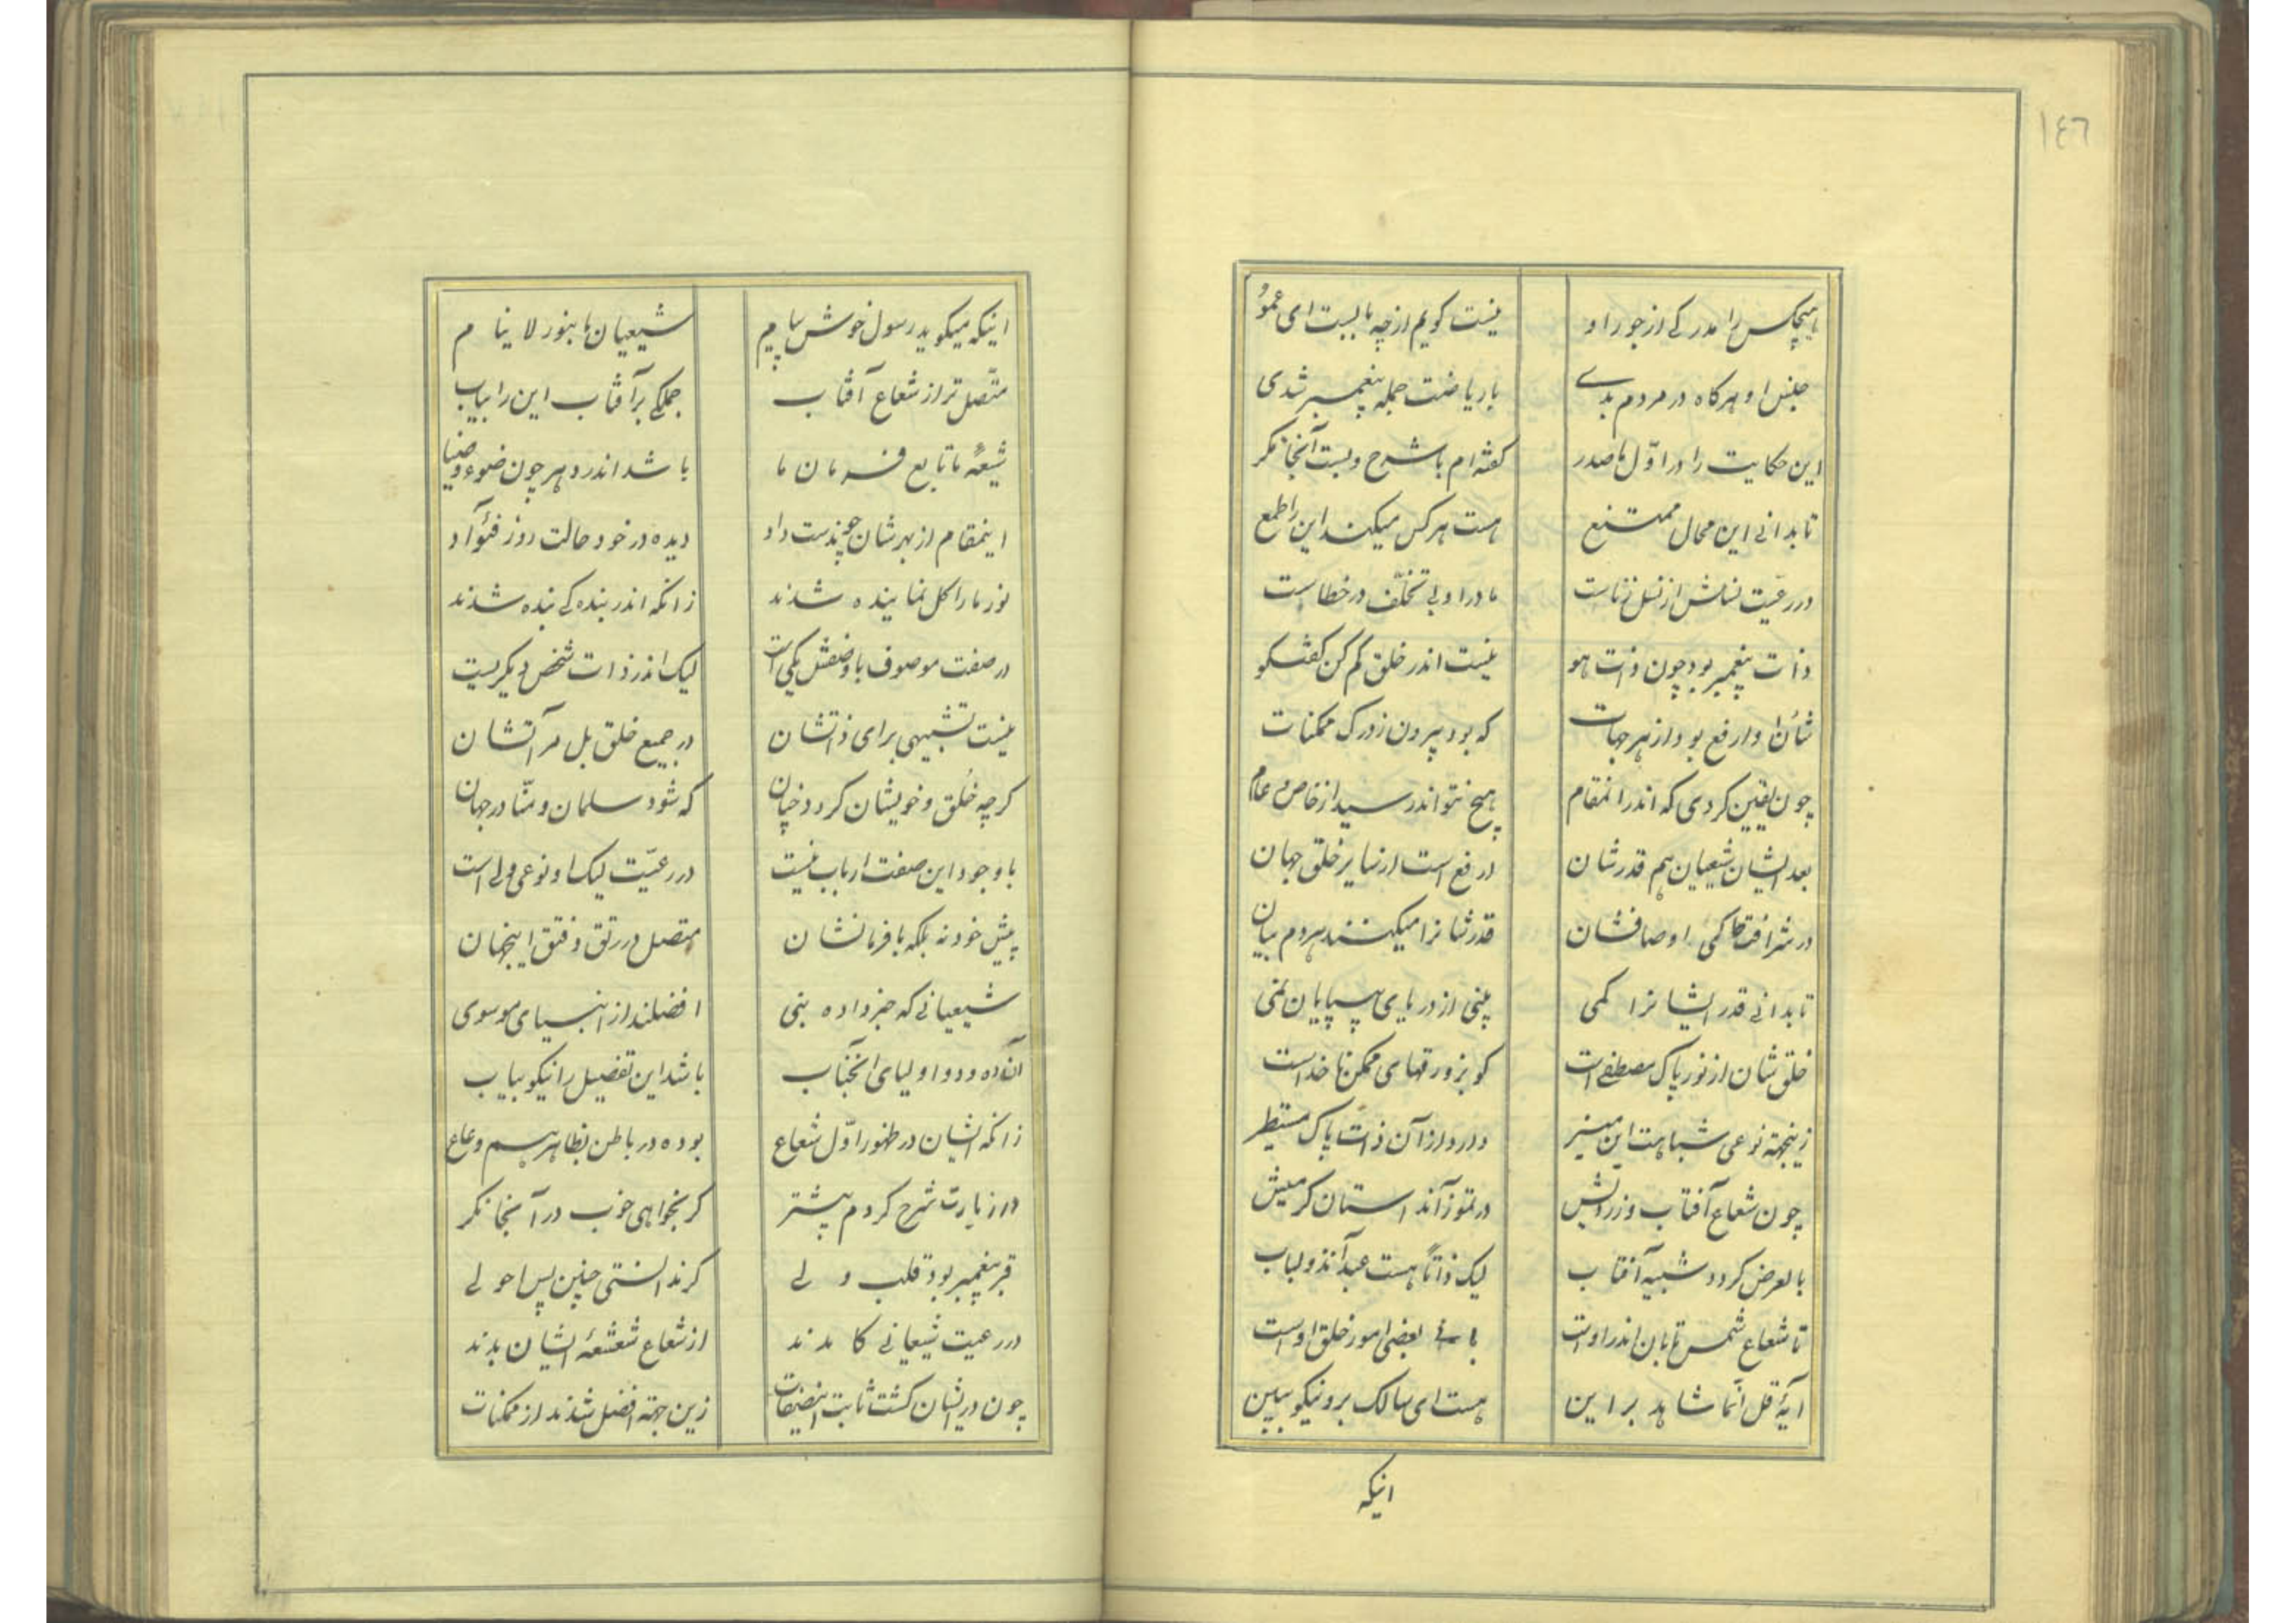 ١٤٦
هیچکس را مدرکی از جور او نیست گویم از چه بابست ای عمو
جنس او هرگاه در مردم بدی باریاضت جمله پیغمبر شدی
این حکایت را در اوّل ما صدر گفته‌ام با شرح و بست آنجا نگر
تا بدانی این محال ممتنع هست هرکس میکند این را طمع
در رعیّت نسلش از نسل زناست مادر او بی تخلّف در خطا است
ذات پیغمبر بود چون ذات هو نیست اندر خلق کم کن گفتگو
شأن او ارفع بود از هر جهات که بود بیرون ز درک ممکنات
چون یقین کردی که اندر انمقام هیچ نتواند رسید از خاص و عام
بعد ایشان شیعیان هم قدرشان ارفع است از سایر خلق جهان
در شرافتها کمی اوصافشان قدرشانرا میکنند مردم بیان
تا بدانی قدر ایشانرا کمی بینی از دریای بی پایان نمی
خلق شان از نور پاک مصطفی است کو بزورقهای ممکن ناخداست
زینجهة نوعی شباهت این منیر دارد از آن ذات پاک مستطیر
چون شعاع آفتاب و زردیش در تموز آند استان گرمیش
بالعرض گردد شبیه آفتاب لیک ذاتاً هست عبد آند و لباب
تا شعاع شمس تابان اندر اوست بانی بعضی امور خلق اوست
آیهٔ قل انّما شاهد بر این هست ای سالک برو نیکو ببین
اینکه
اینکه میگوید رسول خوش پیام شیعیان ما بنور لاینام
متّصل‌تر از شعاع آفتاب جملگی بر آفتاب این را بیاب
شیعهٔ ما تابع فرمان ما باشد اندر دهر چون ضوء و ضیا
اینمقام از بهرشان چون دست داد دیده در خود حالت روز فؤآد
نور ما را کل نماینده شدند زانکه اندر بندگی بنده شدند
در صفت موصوف با وصفش یکی است لیک اندر ذات شخص دیگریست
نیست تشبیهی برای ذاتشان در جمیع خلق بل مرآتشان
گرچه خُلق و خویشان گردد چنان که شود سلمان و منّا در جهان
با وجود این صفت ارباب نیست در رعیّت لیک او نوعی ولی است
پیش خود نه بلکه با فرمانشان متصل در رتق و فتق اینجهان
شیعیانی که خبر داده نبی افضلند از انبیای موسوی
آن ده و دو اولیای آنجناب باشد این تفضیل را نیکو بیاب
زانکه ایشان در ظهور اوّل شعاع بوده در باطن بظاهر هم وعاع
در زیارت شرح کردم پیشتر گر بخواهی خوب در آنجا نگر
قبر پیغمبر بود قلب ولی گر ندانستی چنین پس احولی
در رعیت شیعیانی کامدند از شعاع شعشعهٔ ایشان بدند
چون در ایشان گشت ثابت اینصفات زین جهة افضل شدند از ممکنات